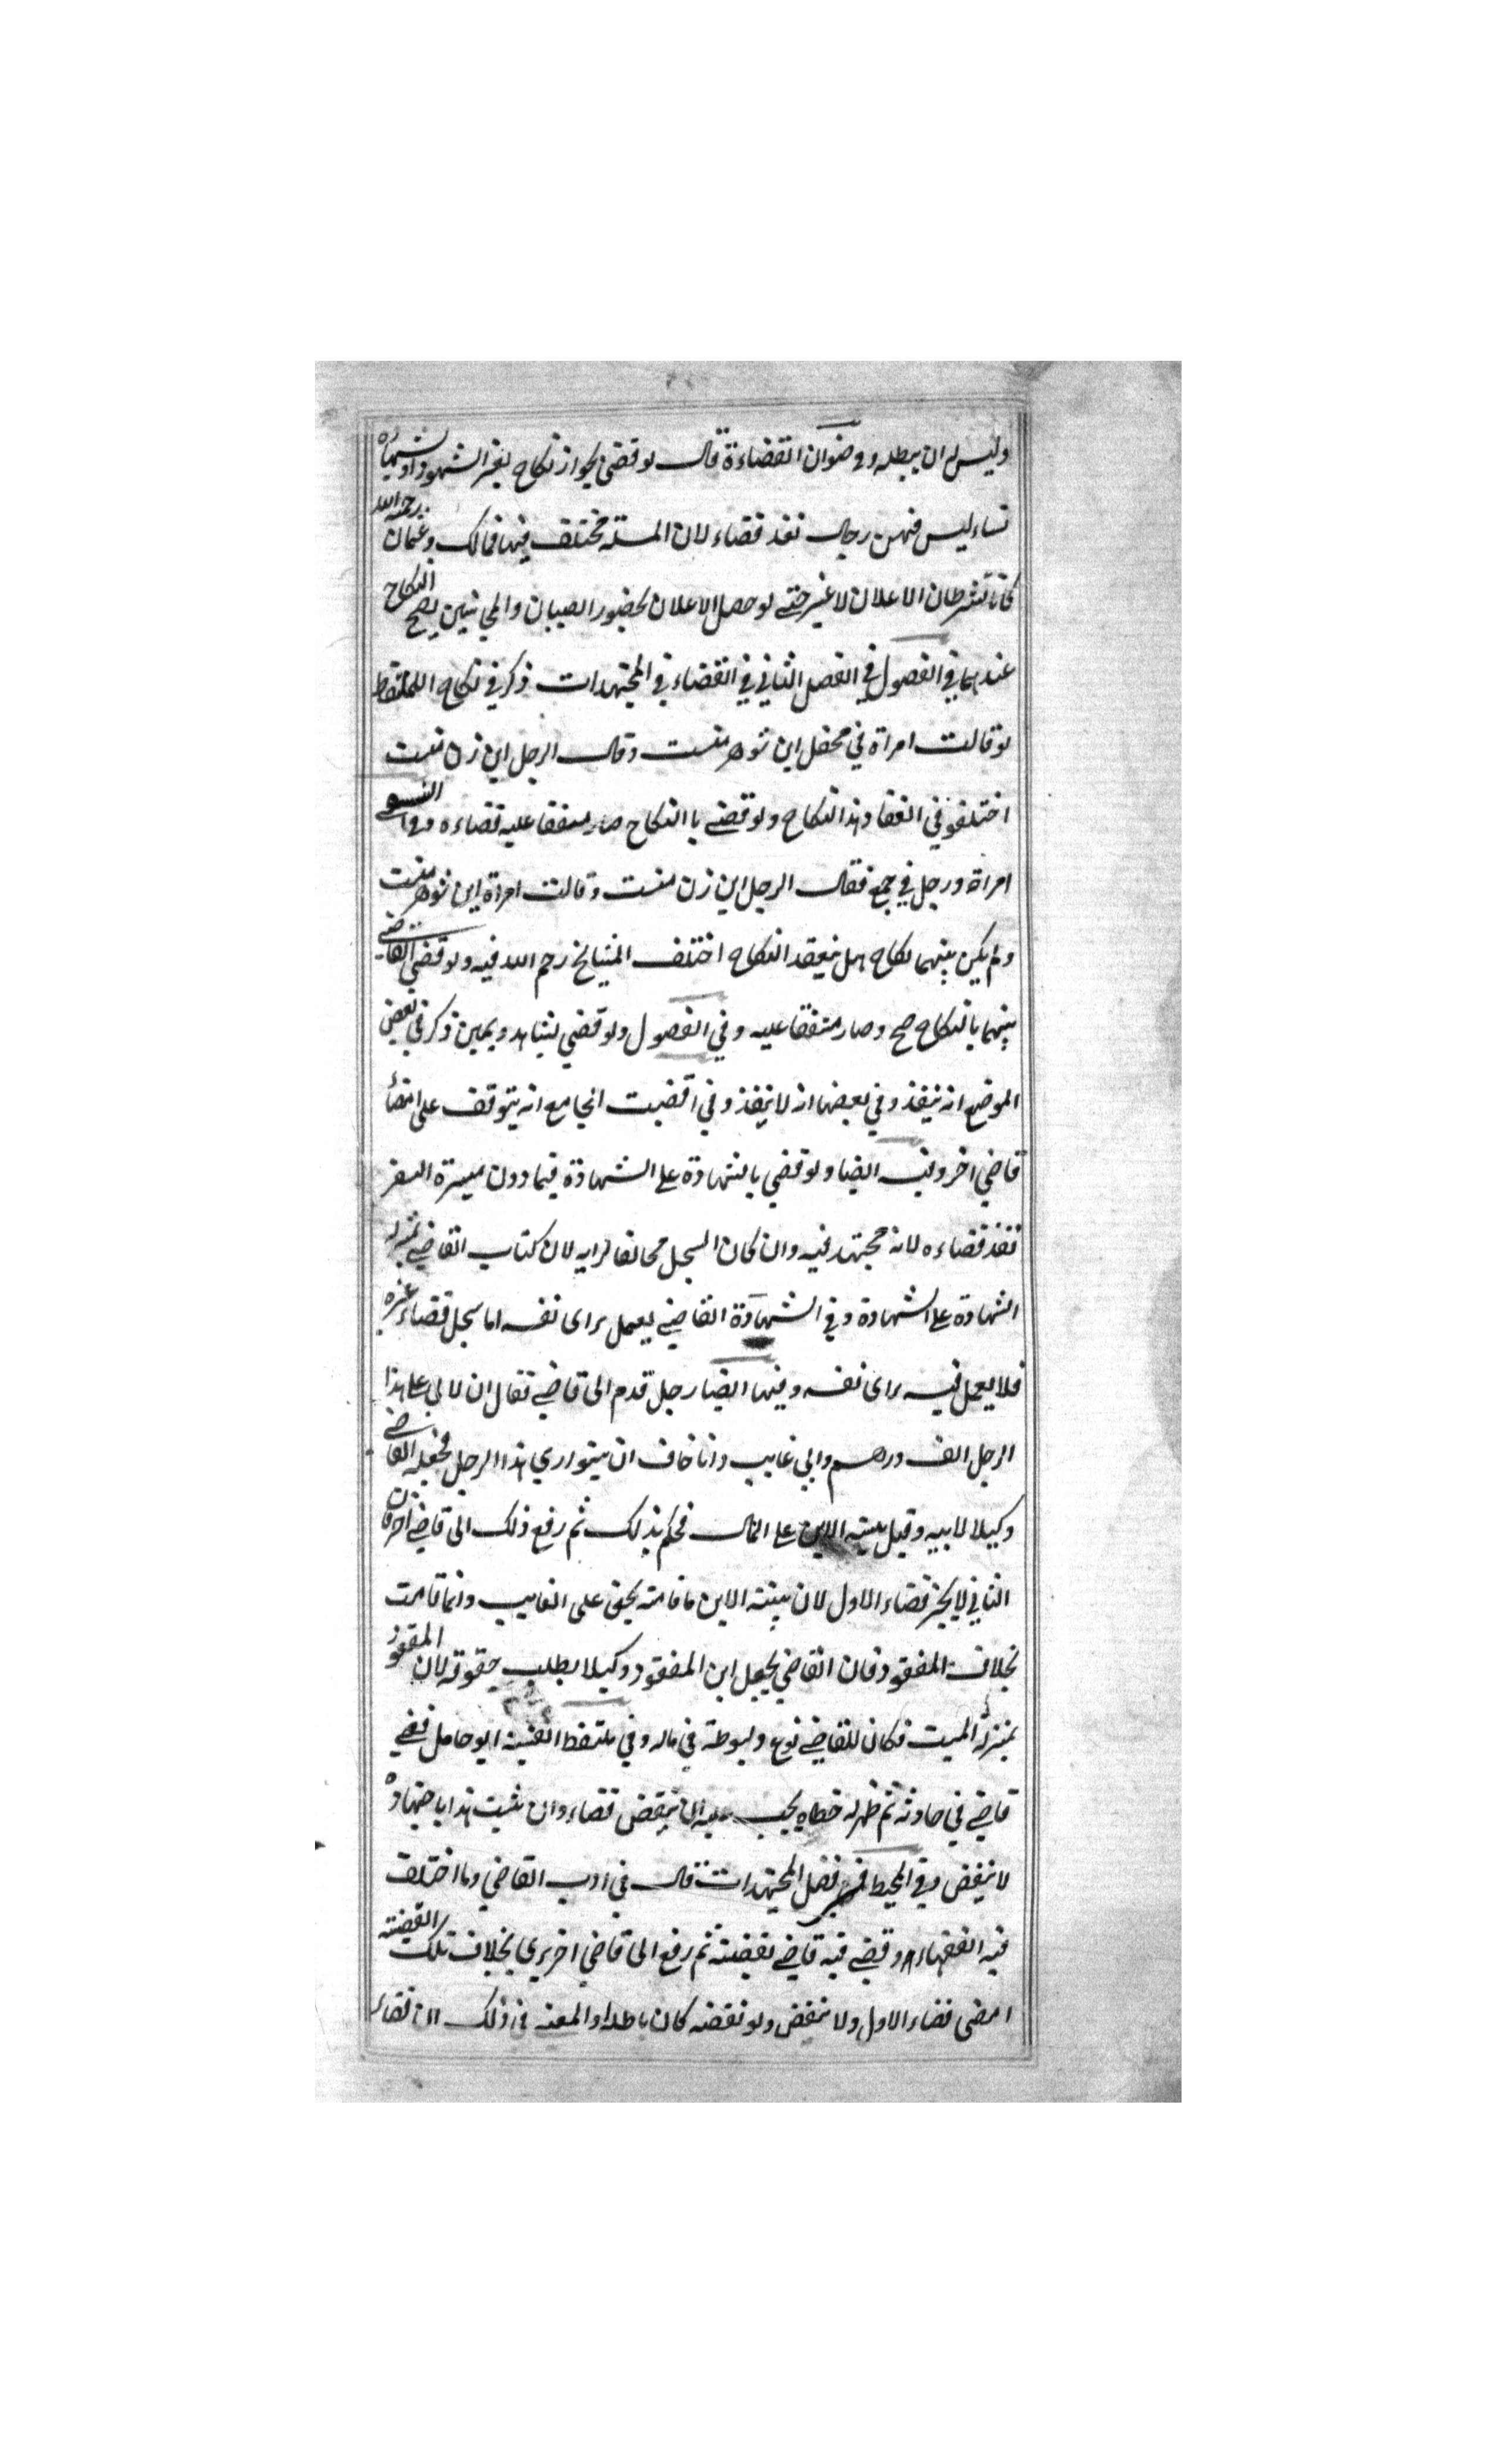 وليس له ان يبطله وفي صنوان القضاءة قال لو قضى بجواز نكاح بغير الشهود او بشهادة
نساء ليس فيهن رجال نفذ قضاء لان المسئلة مختلف فيها فمالك وعثمان رحمه الله
كانا تشرطان الاعلان لا غير حتى لو حصل الاعلان بحضور الصبيان والمجانين يصح النكاح
عندهما في الفصول في الفصل الثاني في القضاء في المجتهدات ذكر في نكاح الملتقط
لو قالت امراة في محفل اين شوهر منست وقال الرجل اين زن منست
اختلفو في انعقاد هذا النكاح ولو قضى با النكاح صار متفقا عليه قضاءه وفي
امراة ورجل في جمع فقال الرجل اين زن منست وقالت امراة اين شوهر منست
ولم يكن بينهما نكاح هل ينعقد النكاح اختلف المشايخ رحم الله فيه ولو قضى القاضي
بينهما بالنكاح صح وصار متفقا عليه وفي الفصول ولو قضي بشاهد ويمين ذكر في بعض
الموضع انه ينفذ وفي بعضها انه لا ينفذ وفي اقضيت الجامع انه يتوقف على امضاء
قاضي اخر وفيه ايضا ولو قضي بالشهادة على الشهادة فيما دون ميسرة السفر
نفذ قضاءه لانه مجتهد فيه وان كان السجل مخالفا لرايه لان كتاب القاضي بمنزلة
الشهادة على الشهادة وفي الشهادة القاضي يعمل براى نفسه اما سجل قضاء غيره
فلا يعمل فيه براى نفسه وفيها ايضا رجل قدم الى قاضي فقال ان لابي على هذا
الرجل الف درهم وابي غايب وانا خاف ان يتواري هذا الرجل فجعله القاضي
وكيلا لابيه وقبل بينة الابن على المال فحكم بذلك ثم رفع ذلك الى قاضي اخر فان
الثاني لا يجيز قضاء الاول لان بينة الابن ما قامت بحق على الغايب وانما قامت
بخلاف المفقود فان القاضي يجعل ابن المفقود وكيلا بطلب حقوقه لان المفقود
بمنزلة الميت فكان للقاضي نوع ولبوطة في ماله وفي ملتقط الفتية ابو حامل قضي
قاضي في حادثة ثم ظهر له خطاه يجب عليه ان ينقض قضاء وان يثبت هذا باجتهاده
لا ينقض وفي المحيط في فصل المجتهدات قال في ادب القاضي وما اختلف
فيه الفقهاء وقضي فيه قاضي بقضية ثم رفع الى قاضي اخر يري بخلاف تلك القضية
امضى قضاء الاول ولا ينقض ولو نقضه كان باطلا والمعنى في ذلك ان قضاء